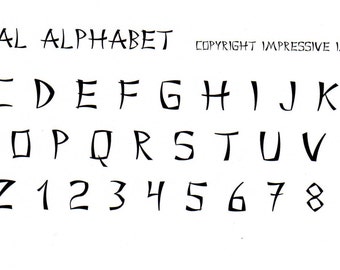 AL ALPHABET
COPYRIGHT IMPRESSIVE I
C D E F G H I J K
O P Q R S T U V
Z 1 2 3 4 5 6 7 8